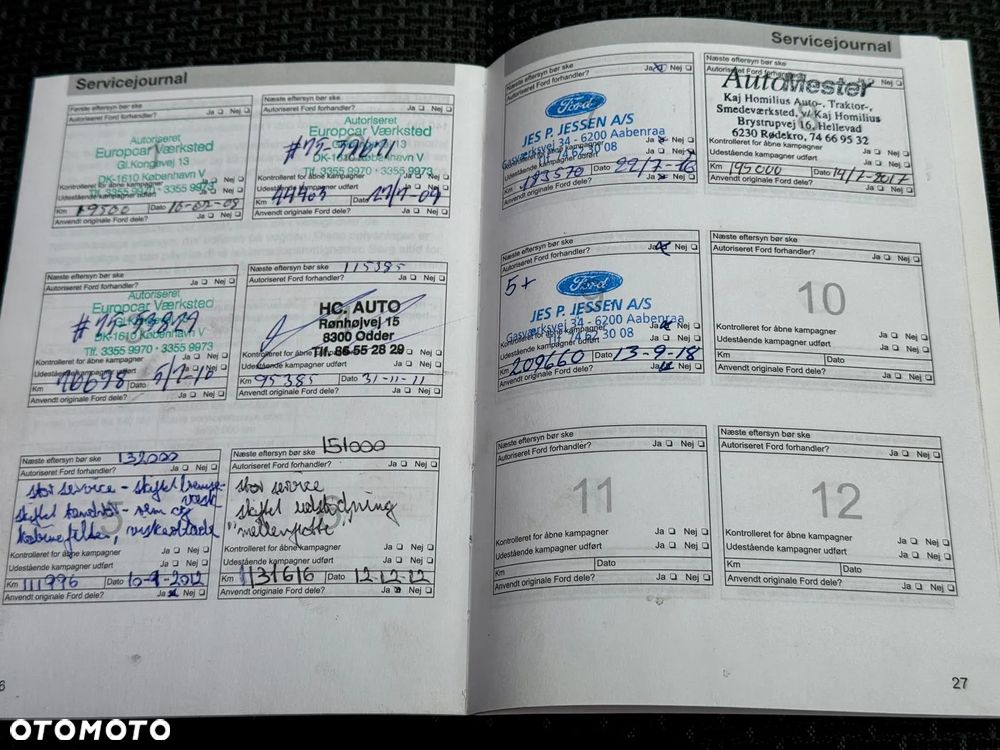 Servicejournal
Første eftersyn bør ske
Autoriseret Ford forhandler? Ja Nej
Autoriseret
Europcar Værksted
Gl. Kongevej 13
DK-1610 København V
Kontrolleret for åbne kampagner
Tlf. 3355 9970 · 3355 9973
Udestående kampagner udført Ja Nej
Km 19500 Dato
Anvendt originale Ford dele? Ja Nej
Næste eftersyn bør ske
Autoriseret Ford forhandler? Ja Nej
Autoriseret
Europcar Værksted
DK-1610 København V
Tlf. 3355 9970 · 3355 9973
Kontrolleret for åbne kampagner Ja Nej
Udestående kampagner udført Ja Nej
Km 44403 Dato
Anvendt originale Ford dele? Ja Nej
Næste eftersyn bør ske
Autoriseret Ford forhandler? Ja Nej
Autoriseret
Europcar Værksted
DK-1610 København V
Tlf. 3355 9970 · 3355 9973
Kontrolleret for åbne kampagner Ja Nej
Udestående kampagner udført Ja Nej
Km 70698 Dato
Anvendt originale Ford dele? Ja Nej
Næste eftersyn bør ske 115385
Autoriseret Ford forhandler? Ja Nej
HC. AUTO
Rønhøjvej 15
8300 Odder
Kontrolleret for åbne kampagner Ja Nej
Tlf. 86 55 28 29
Udestående kampagner udført Ja Nej
Km 95385 Dato 31-11-11
Anvendt originale Ford dele? Ja Nej
Næste eftersyn bør ske 132000
Autoriseret Ford forhandler? Ja Nej
stor service - skiftet bremse-
væske
skiftet tandrem og
kabinefilter, viskerblade
Kontrolleret for åbne kampagner Ja Nej
Udestående kampagner udført Ja Nej
Km 111996 Dato 10-9-2012
Anvendt originale Ford dele? Ja Nej
151000
Næste eftersyn bør ske
Autoriseret Ford forhandler? Ja Nej
stor service
skiftet udstødning
Kontrolleret for åbne kampagner Ja Nej
Udestående kampagner udført Ja Nej
Km 131616 Dato 12-12-12
Anvendt originale Ford dele? Ja Nej
6
Servicejournal
Næste eftersyn bør ske
Autoriseret Ford forhandler? Ja Nej
Ford
JES P. JESSEN A/S
Gasværksvej 34 - 6200 Aabenraa
Tlf. 74 62 30 08
Kontrolleret for åbne kampagner Ja Nej
Udestående kampagner udført Ja Nej
Km 183570 Dato 22/7-16
Anvendt originale Ford dele? Ja Nej
Næste eftersyn bør ske
Autoriseret Ford forhandler? Ja Nej
AutoMester
Kaj Homilius Auto-, Traktor-,
Smedeværksted, v/ Kaj Homilius
Brystrupvej 16, Hellevad
6230 Rødekro, 74 66 95 32
Kontrolleret for åbne kampagner Ja Nej
Udestående kampagner udført Ja Nej
Km 195000 Dato 14/7-2017
Anvendt originale Ford dele? Ja Nej
Næste eftersyn bør ske
Autoriseret Ford forhandler? Ja Nej
5+
Ford
JES P. JESSEN A/S
Gasværksvej 34 - 6200 Aabenraa
Tlf. 74 62 30 08
Kontrolleret for åbne kampagner Ja Nej
Udestående kampagner udført Ja Nej
Km 209660 Dato 13-9-18
Anvendt originale Ford dele? Ja Nej
Næste eftersyn bør ske
Autoriseret Ford forhandler? Ja Nej
10
Kontrolleret for åbne kampagner Ja Nej
Udestående kampagner udført Ja Nej
Km Dato
Anvendt originale Ford dele? Ja Nej
Næste eftersyn bør ske
Autoriseret Ford forhandler? Ja Nej
11
Kontrolleret for åbne kampagner Ja Nej
Udestående kampagner udført Ja Nej
Km Dato
Anvendt originale Ford dele? Ja Nej
Næste eftersyn bør ske
Autoriseret Ford forhandler? Ja Nej
12
Kontrolleret for åbne kampagner Ja Nej
Udestående kampagner udført Ja Nej
Km Dato
Anvendt originale Ford dele? Ja Nej
27
OTOMOTO